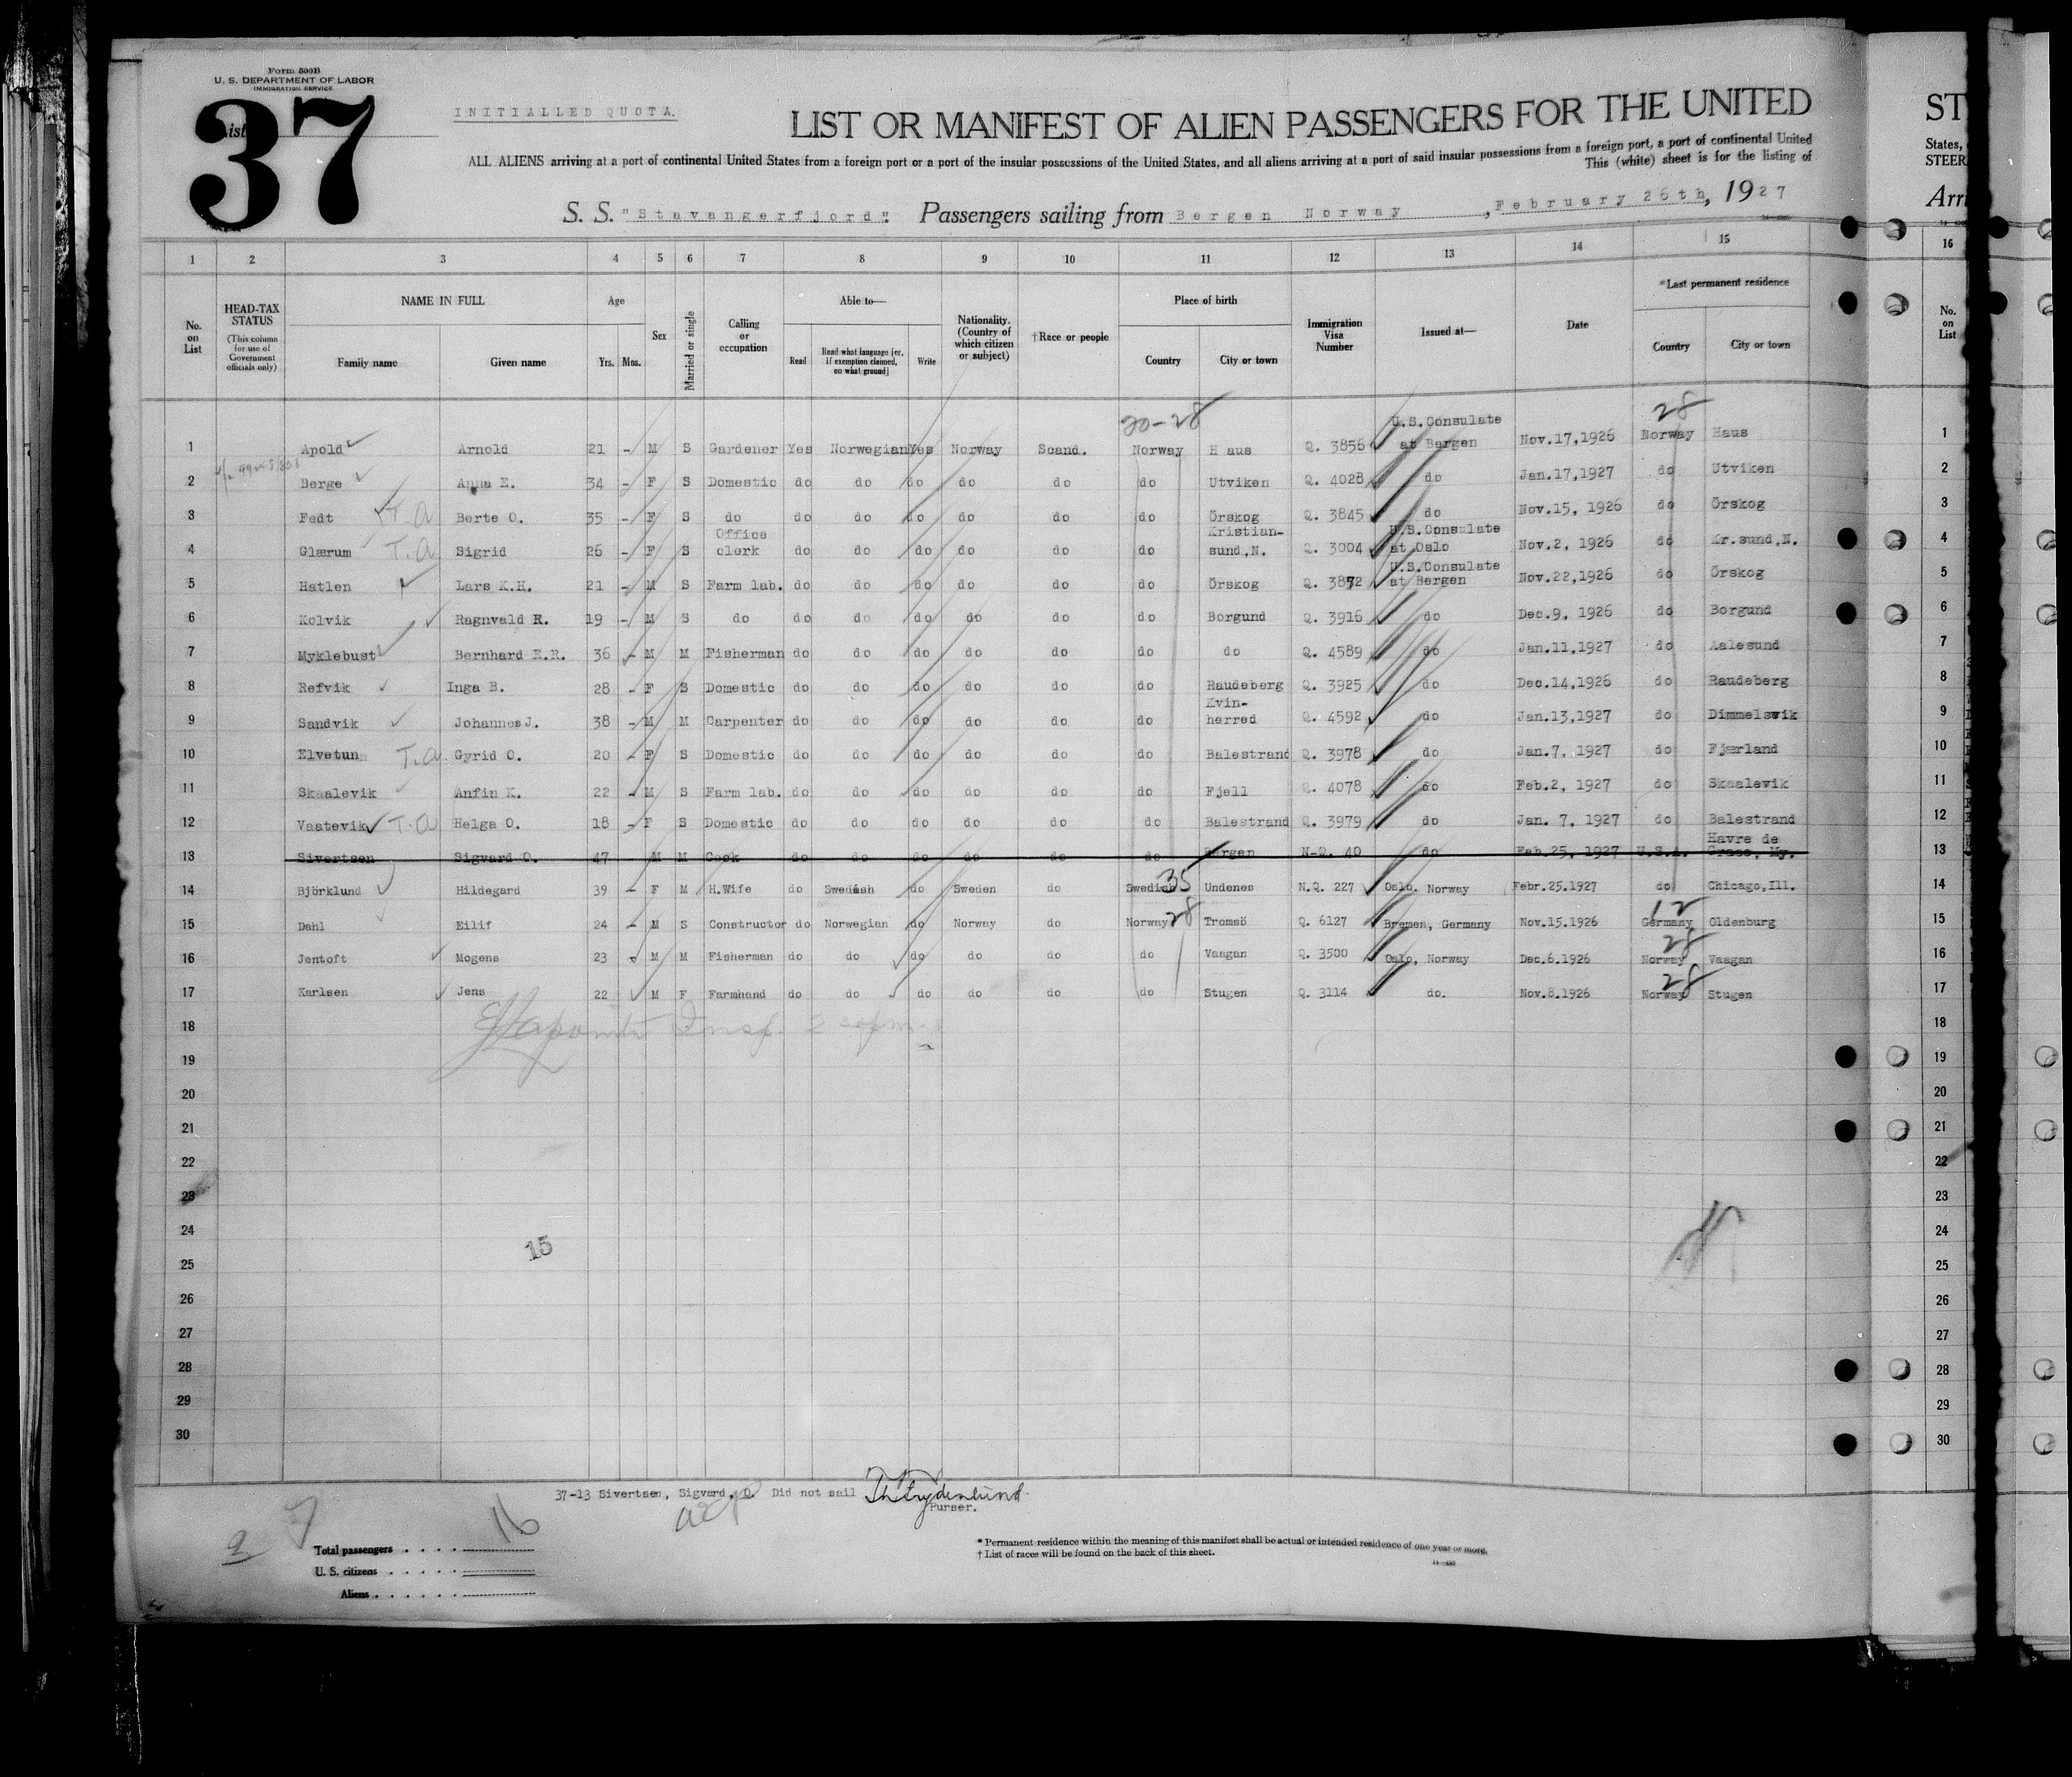 Form 500B
U. S. DEPARTMENT OF LABOR
IMMIGRATION SERVICE
List 37
INITIALLED QUOTA.
LIST OR MANIFEST OF ALIEN PASSENGERS FOR THE UNITED
ALL ALIENS arriving at a port of continental United States from a foreign port or a port of the insular possessions of the United States, and all aliens arriving at a port of said insular possessions from a foreign port, a port of continental United
This (white) sheet is for the listing of
S. S. "Stavangerfjord". Passengers sailing from Bergen Norway, February 26th, 1927
1 2 3 4 5 6 7 8 9 10 11 12 13 14 15
No. on List
HEAD-TAX STATUS (This column for use of Government officials only)
NAME IN FULL Family name Given name
Age Yrs. Mos.
Sex
Married or single
Calling or occupation
Able to— Read Read what language [or, if exemption claimed, on what ground] Write
Nationality. (Country of which citizen or subject)
†Race or people
Place of birth Country City or town
Immigration Visa Number
Issued at—
Date
*Last permanent residence Country City or town
20-28 28
1 Apold Arnold 21 - M S Gardener Yes Norwegian Yes Norway Scand. Norway Haus Q. 3856 U.S.Consulate at Bergen Nov.17,1926 Norway Haus
2 Berge Anna E. 34 - F S Domestic do do do do do do Utviken Q. 4028 do Jan.17,1927 do Utviken
3 Fedt T.A Berte O. 35 - F S do do do do do do do Örskog Q. 3845 do Nov.15, 1926 do Örskog
4 Glærum T.A Sigrid 26 - F S Office clerk do do do do do do Kristian-sund,N. Q. 3004 U.S.Consulate at Oslo Nov.2, 1926 do Kr.sund,N.
5 Hatlen Lars K.H. 21 - M S Farm lab. do do do do do do Örskog Q. 3872 U.S.Consulate at Bergen Nov.22,1926 do Örskog
6 Kolvik Ragnvald R. 19 - M S do do do do do do do Borgund Q. 3916 do Dec.9, 1926 do Borgund
7 Myklebust Bernhard E.R. 36 - M M Fisherman do do do do do do do Q. 4589 do Jan.11,1927 do Aalesund
8 Refvik Inga B. 28 - F S Domestic do do do do do do Raudeberg Q. 3925 do Dec.14,1926 do Raudeberg
9 Sandvik Johannes J. 38 - M M Carpenter do do do do do do Kvin-herred Q. 4592 do Jan.13,1927 do Dimmelsvik
10 Elvetun T.A Gyrid O. 20 - F S Domestic do do do do do do Balestrand Q. 3978 do Jan.7, 1927 do Fjærland
11 Skaalevik Anfin K. 22 - M S Farm lab. do do do do do do Fjell Q. 4078 do Feb.2, 1927 do Skaalevik
12 Vastevik T.A Helga O. 18 - F S Domestic do do do do do do Balestrand Q. 3979 do Jan. 7, 1927 do Balestrand
13 Sivertsen Sigvard O. 47 M M Cook do do do do do do Bergen N-Q. 40 do Feb.25, 1927 U.S.A. Havre de Grace, My.
14 Björklund Hildegard 39 - F M H.Wife do Swedish do Sweden do Swedish 35 Undenes N.Q. 227 Oslo, Norway Febr.25.1927 do Chicago,Ill.
15 Dahl Eilif 24 - M S Constructor do Norwegian do Norway do Norway 28 Tromsö Q. 6127 Bremen, Germany Nov.15.1926 Germany 12 Oldenburg
16 Jentoft Mogens 23 M M Fisherman do do do do do do Vaagan Q. 3500 Oslo, Norway Dec.6.1926 Norway 28 Vaagan
17 Karlsen Jens 22 M F Farmhand do do do do do do Stugen Q. 3114 do. Nov.8.1926 Norway 28 Stugen
18 Insp.
19
20
21
22
23
24
15
25
26
27
28
29
30
37-13 Sivertsen, Sigvard, O. Did not sail
Purser.
16
Total passengers
U. S. citizens
Aliens
* Permanent residence within the meaning of this manifest shall be actual or intended residence of one year or more.
† List of races will be found on the back of this sheet.
ST
States,
STEER
Arri
16
No. on List
1
2
3
4
5
6
7
8
9
10
11
12
13
14
15
16
17
18
19
20
21
22
23
24
25
26
27
28
29
30